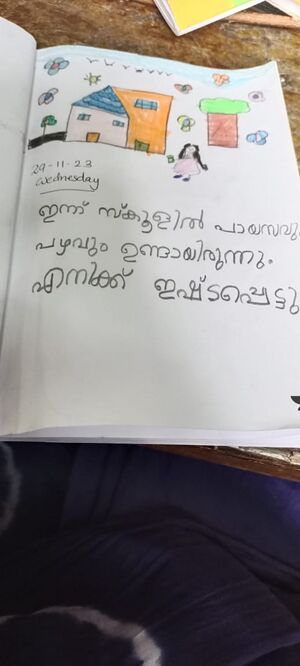 29-11-23
Wednesday
ഇന്ന് സ്കൂളിൽ പായസവും
പഴവും ഉണ്ടായിരുന്നു.
എനിക്ക് ഇഷ്ടപ്പെട്ടു